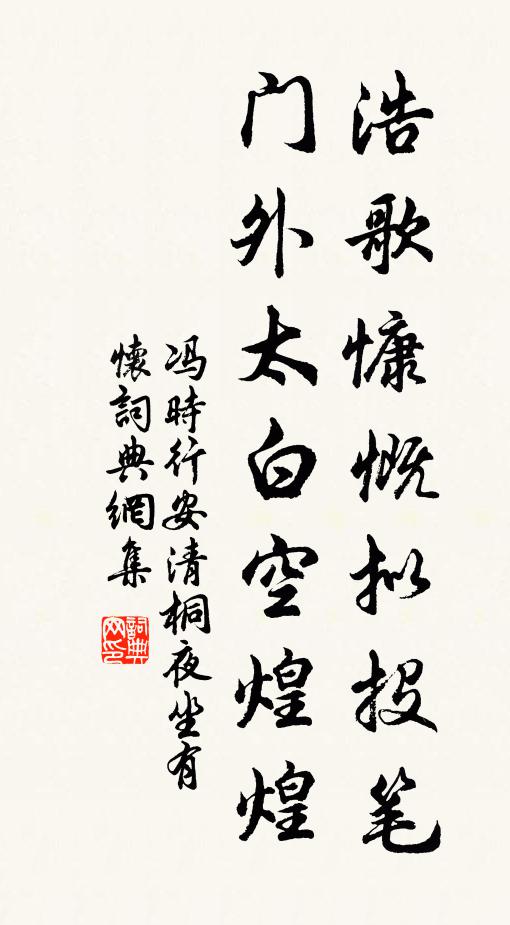 浩歌慷慨拟投笔
门外太白空煌煌
冯時行安清桐夜坐有
懷詞典網集
詞典网印